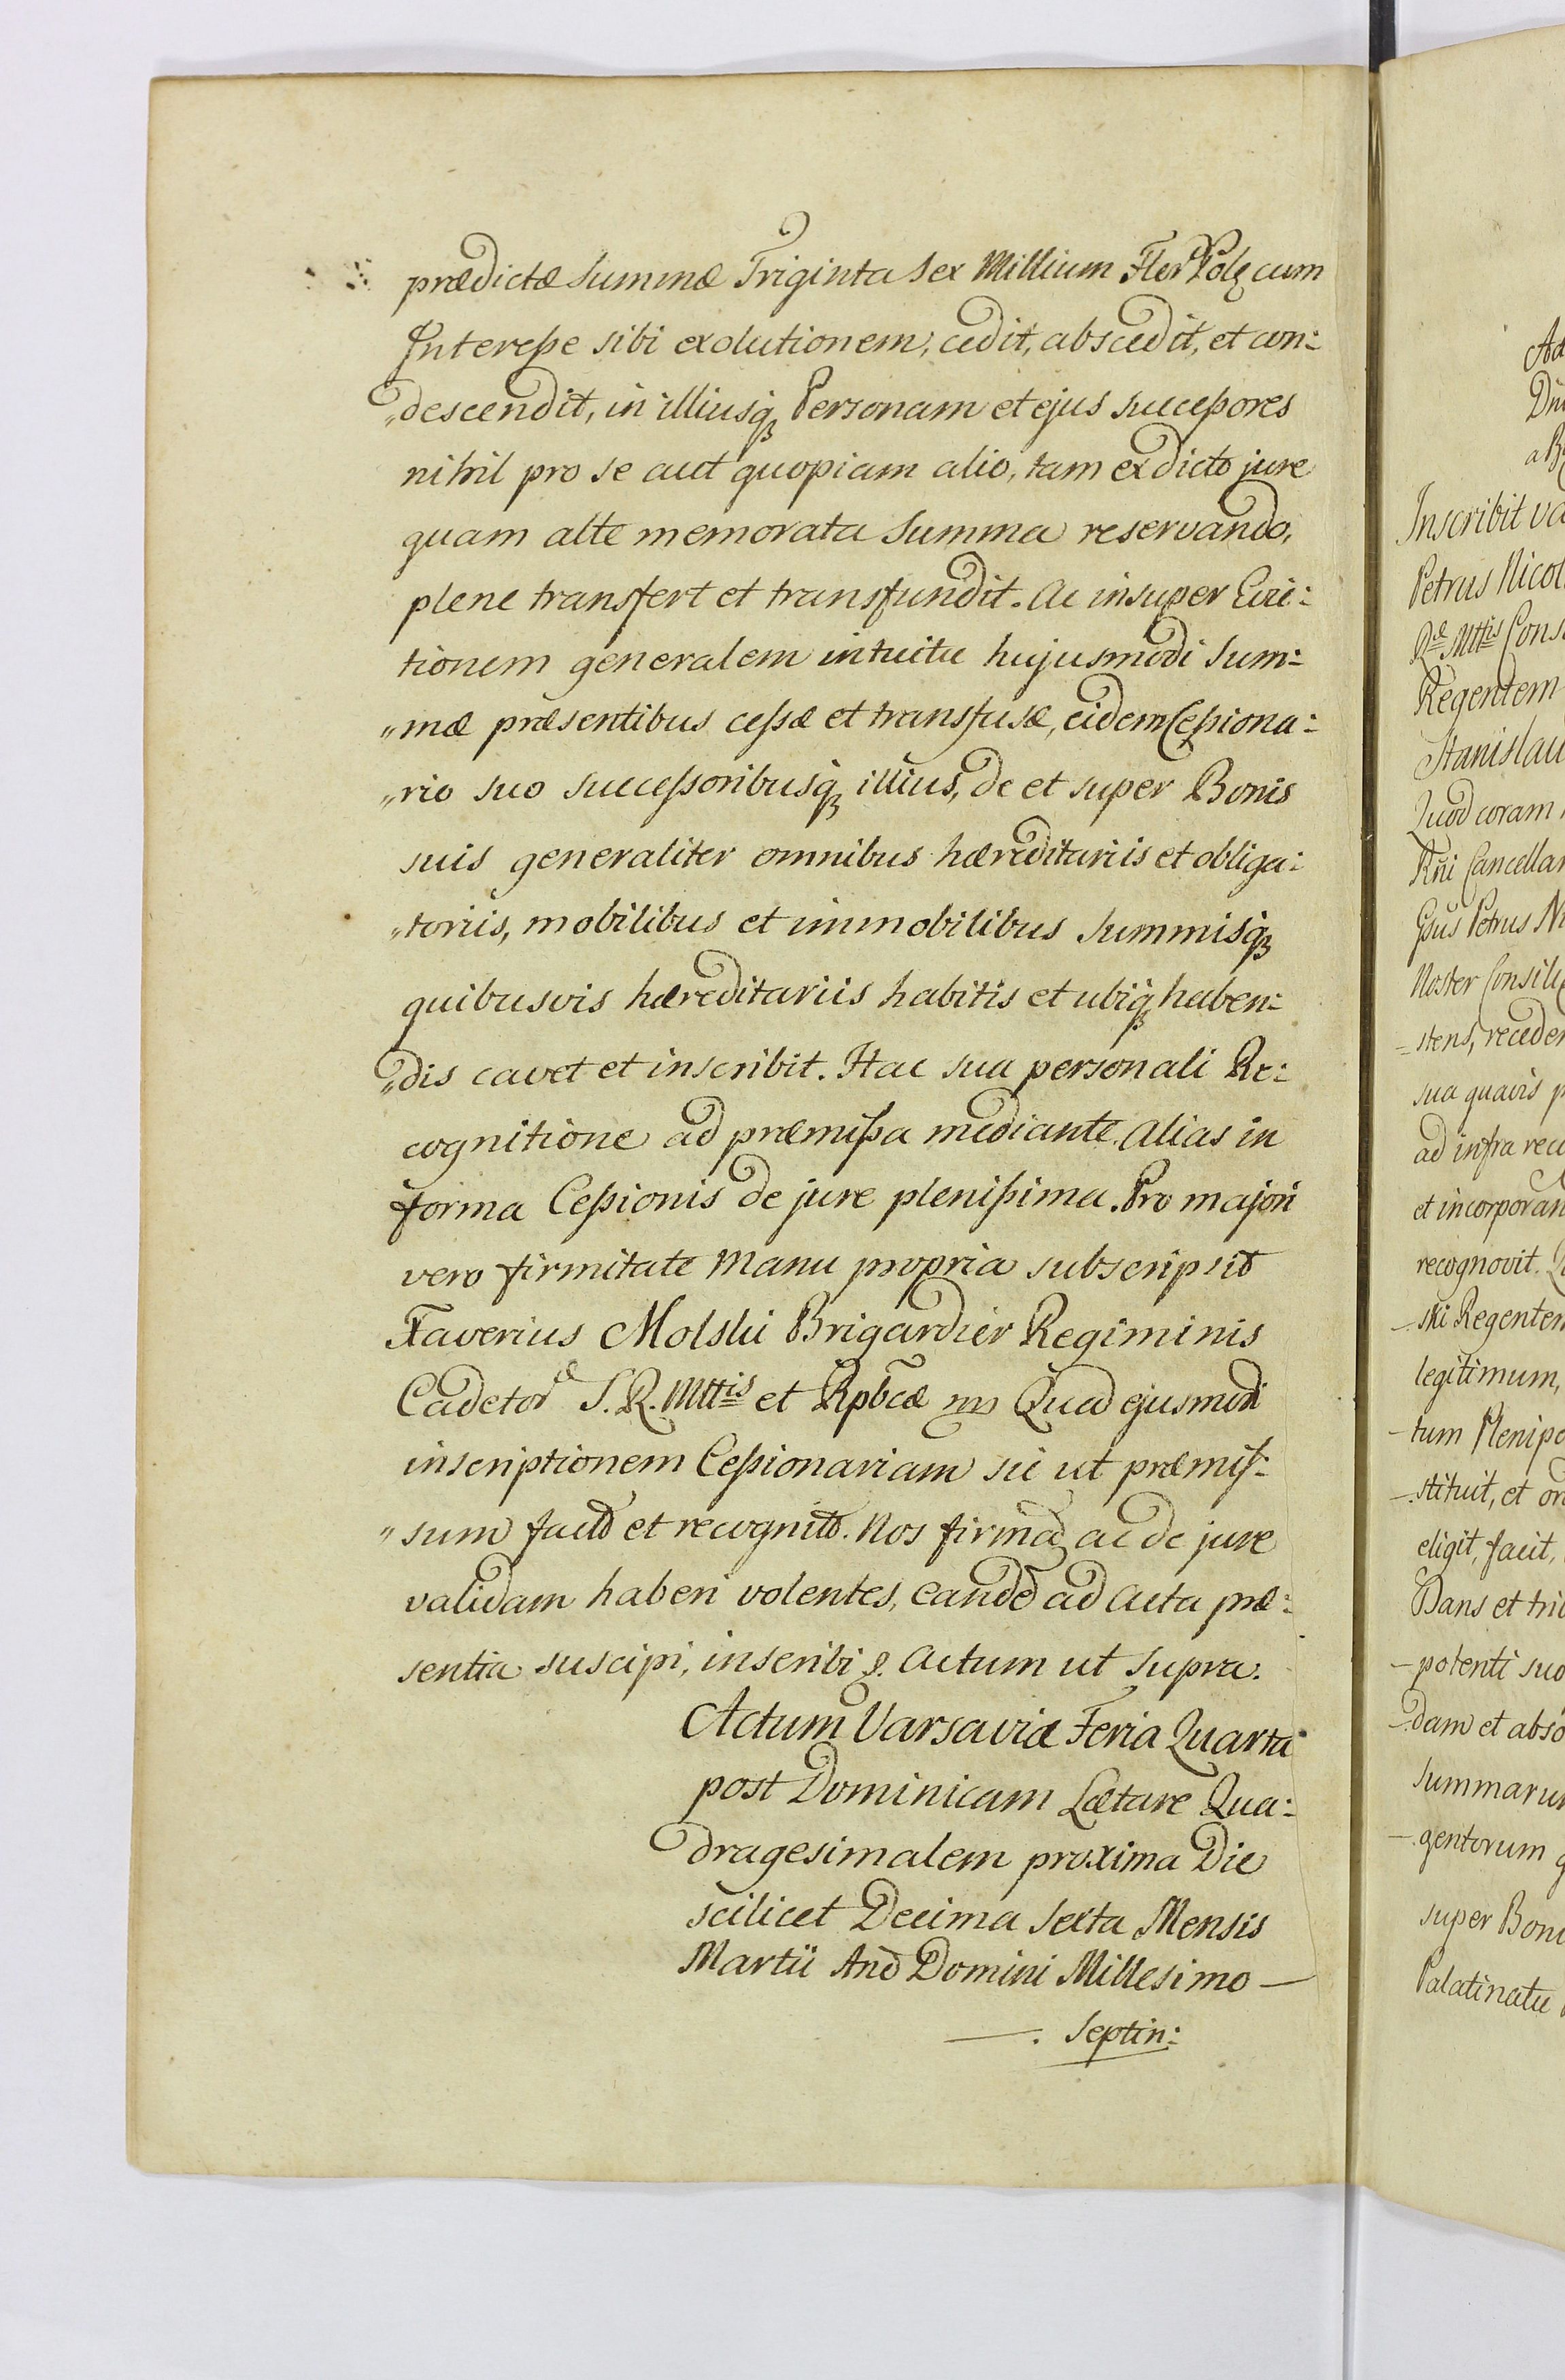 prædictæ Summæ Triginta Sex Millium Flor̃ Polq cum
Interesse sibi exolutionem, cedit, abscedit, et con:
„descendit, in illiusq̃ Personam et ejus successores
nihil pro se aut quopiam alio, tam ex dicto jure
quam alte memorata Summa reservando,
plene transfert et transfundit. Ac insuper Evic:
tionem generalem intuitu hujusmodi Sum:
„mæ præsentibus cessæ et transfusæ, eidem Cessiona:
„rio suo successoribusq̃ illius, de et super Bonis
suis generaliter omnibus hæreditariis et obliga:
„toriis, mobilibus et immobilibus Summisq̃
quibusvis hæreditariis habitis et ubiq̃ haben:
„dis cavet et inscribit. Hac sua personali Re:
cognitione ad præmissa mediante. Alias in
forma Cessionis de jure plenissima. Pro majori
vero firmitate Manu propria subscripsit
Xaverius Molski Brigardier Regiminis
Cadetor̃ S. R. Mttis et Rpbcæ mp Quod ejusmodi
inscriptionem Cessionariam sic ut præmis:
„sum facta et recognita. Nos firmã ac de jure
validam haberi volentes, eandẽ ad Acta præ:
sentia suscipi, inscribi &. Actum ut Supra.
Actum Varsaviæ Feria Quarta
post Dominicam Lætare Qua:
dragesimalem proxima Die
scilicet Decima Sexta Mensis
Martii Anõ Domini Millesimo —
—. Septin:
Inscribit
Petrus
Mttis
Regentem
Quod coram
Gsus Petrus
Noster
-stens,
sua quavis
ad infra
recognovit.
-.ski Regentem
legitimum,
-tum
-.stituit, et
eligit, facit,
Dans et
-potenti suo
-.dam et
-.gentorum
super
Palatinatu